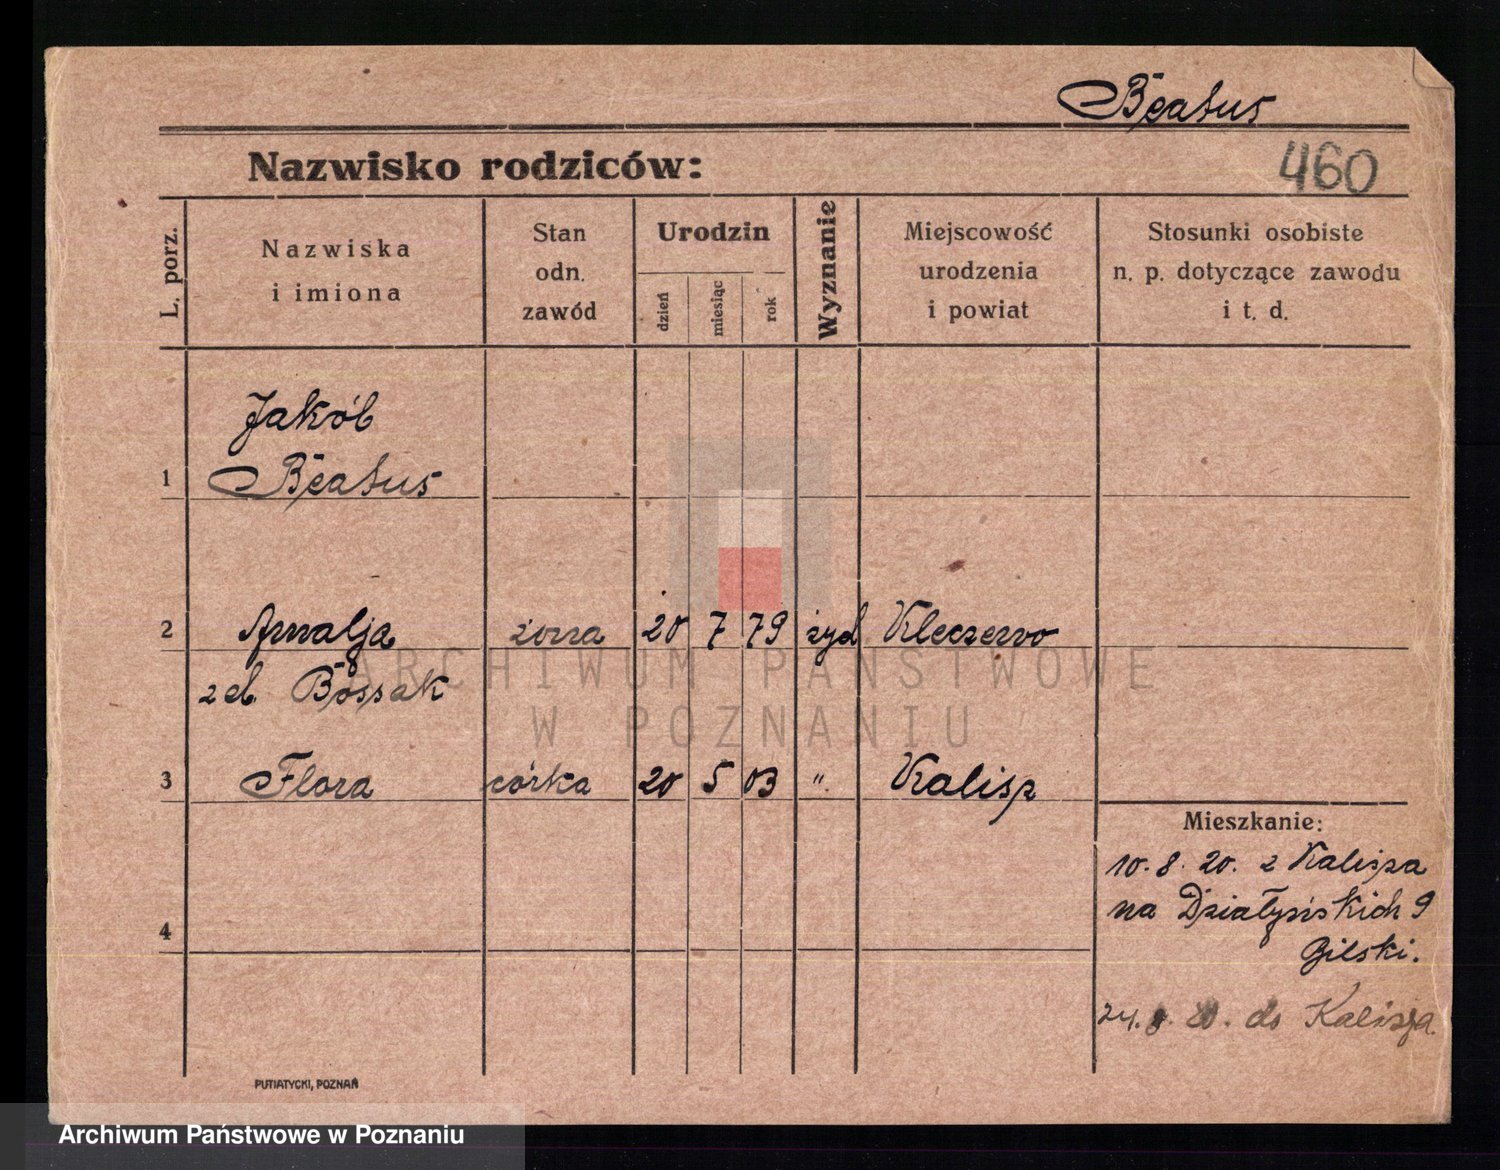 Beatus
Nazwisko rodziców:
460
L. porz.
Nazwiska
i imiona
Stan
odn.
zawód
Urodzin
dzień
miesiąc
rok
Wyznanie
Miejscowość
urodzenia
i powiat
Stosunki osobiste
n. p. dotyczące zawodu
i t. d.
Jakób
1 Beatus
2 Amalja żona 20 7 79 żyd Kleczewo
zd. Bossak
3 Flora córka 20 5 03 " Kalisz
Mieszkanie:
10. 8. 20. z Kalisza
na Działyńskich 9
Bilski.
4
do Kalisza.
PUTIATYCKI, POZNAŃ
ARCHIWUM PAŃSTWOWE
W POZNANIU
Archiwum Państwowe w Poznaniu